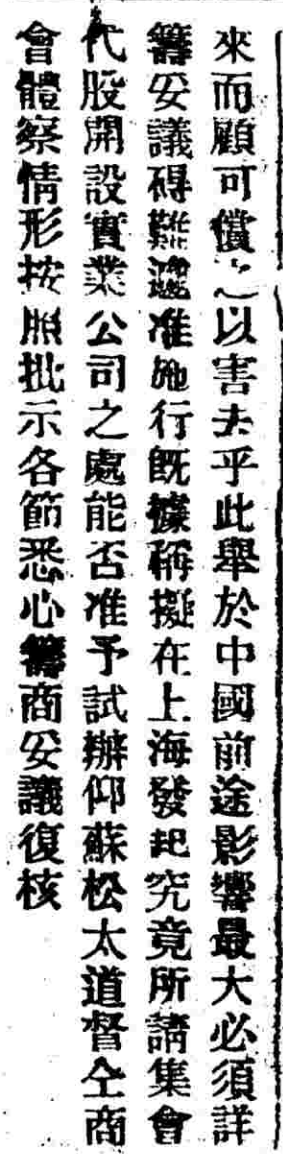 來而顧可償之以害去乎此舉於中國前途影響最大必須詳
籌妥議碍難遽准施行旣據稱擬在上海發起究竟所請集會
代股開設實業公司之處能否准予試辦仰蘇松太道督仝商
會體察情形按照批示各節悉心籌商妥議復核